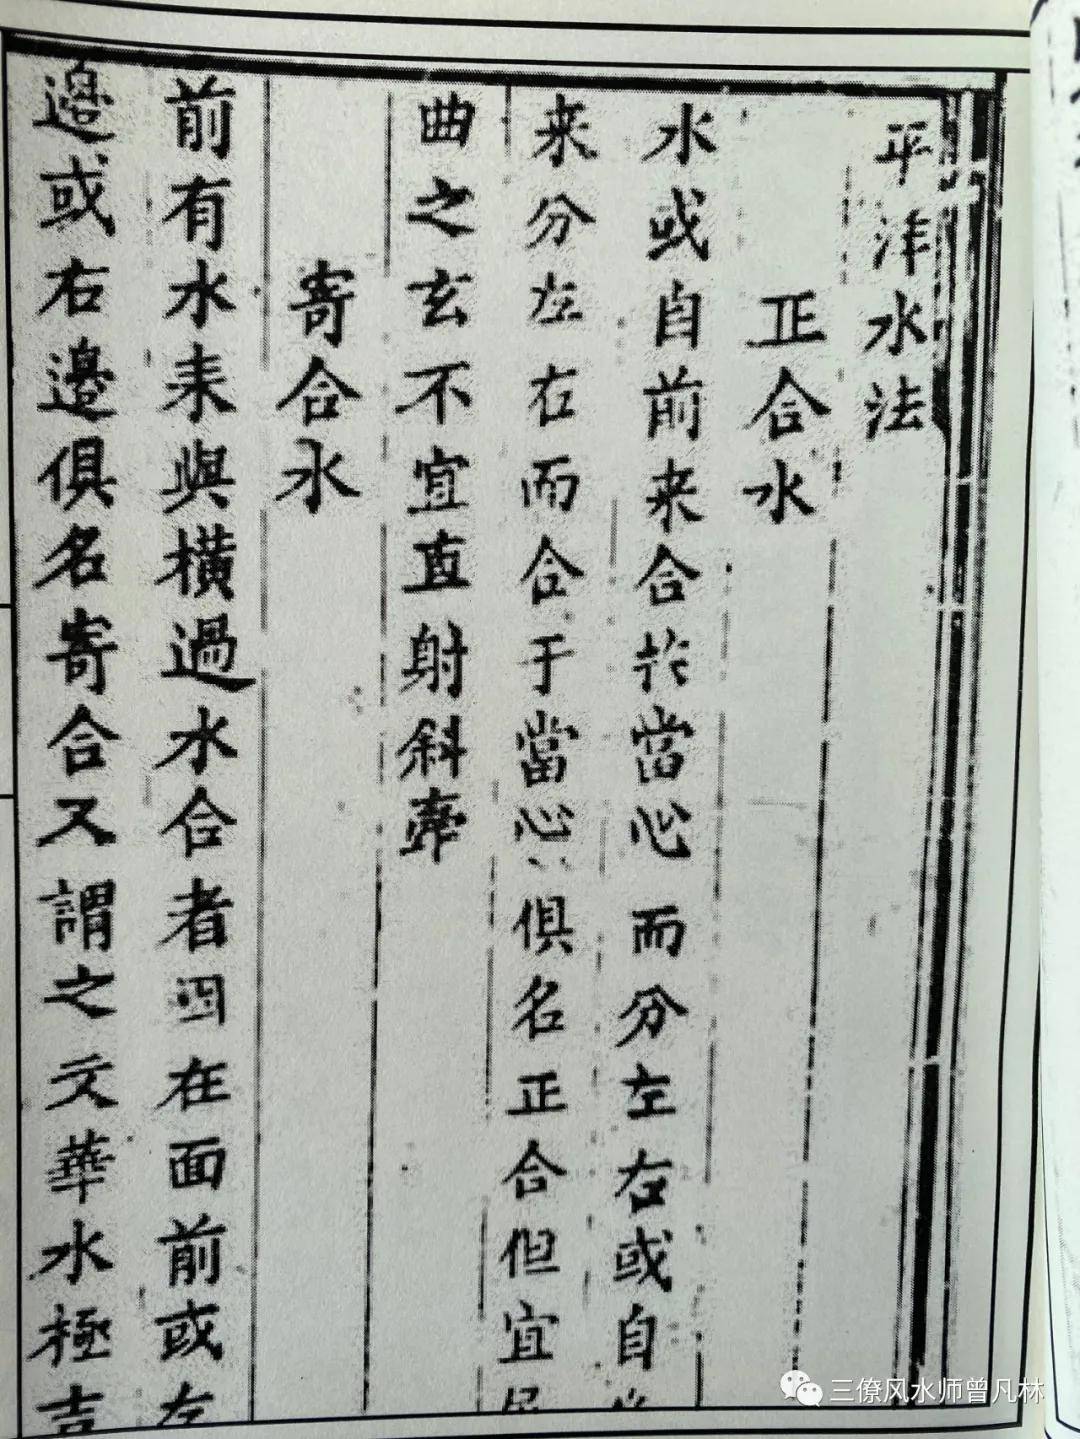 平洋水法
正合水
水或自前来合於當心而分左右或自
来分左右而合于當心俱名正合但宜
曲之玄不宜直射斜牽
寄合水
前有水来與横過水合者四在面前或左
邉或右邉俱名寄合又謂之文華水極吉
三僚风水师曾凡林